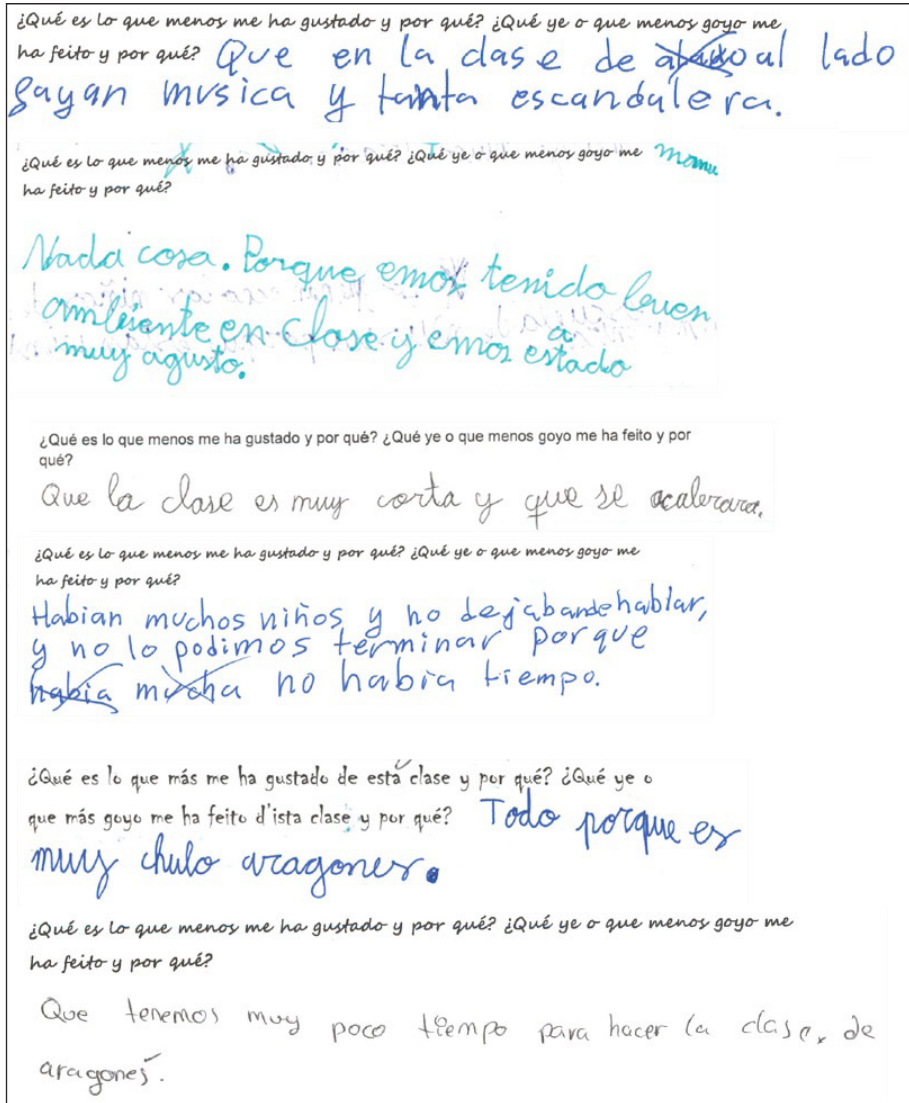 ¿Qué es lo que menos me ha gustado y por qué? ¿Qué ye o que menos goyo me
ha feito y por qué? Que en la clase de al lado
gayan musica y tanta escandalera.
¿Qué es lo que menos me ha gustado y por qué? ¿Qué ye o que menos goyo me
ha feito y por qué?
Nada cosa. Porque emos tenido buen
ambiente en clase y emos estado
a muy agusto.
¿Qué es lo que menos me ha gustado y por qué? ¿Qué ye o que menos goyo me ha feito y por
qué?
Que la clase es muy corta y que se acalerara.
¿Qué es lo que menos me ha gustado y por qué? ¿Qué ye o que menos goyo me
ha feito y por qué?
Habian muchos niños y no dejaban de hablar,
y no lo podimos terminar porque
había mucha no habia tiempo.
¿Qué es lo que más me ha gustado de está clase y por qué? ¿Qué ye o
que más goyo me ha feito d'ista clase y por qué? Todo porque es
muy chulo aragones.
¿Qué es lo que menos me ha gustado y por qué? ¿Qué ye o que menos goyo me
ha feito y por qué?
Que tenemos muy poco tiempo para hacer la clase, de
aragonés.